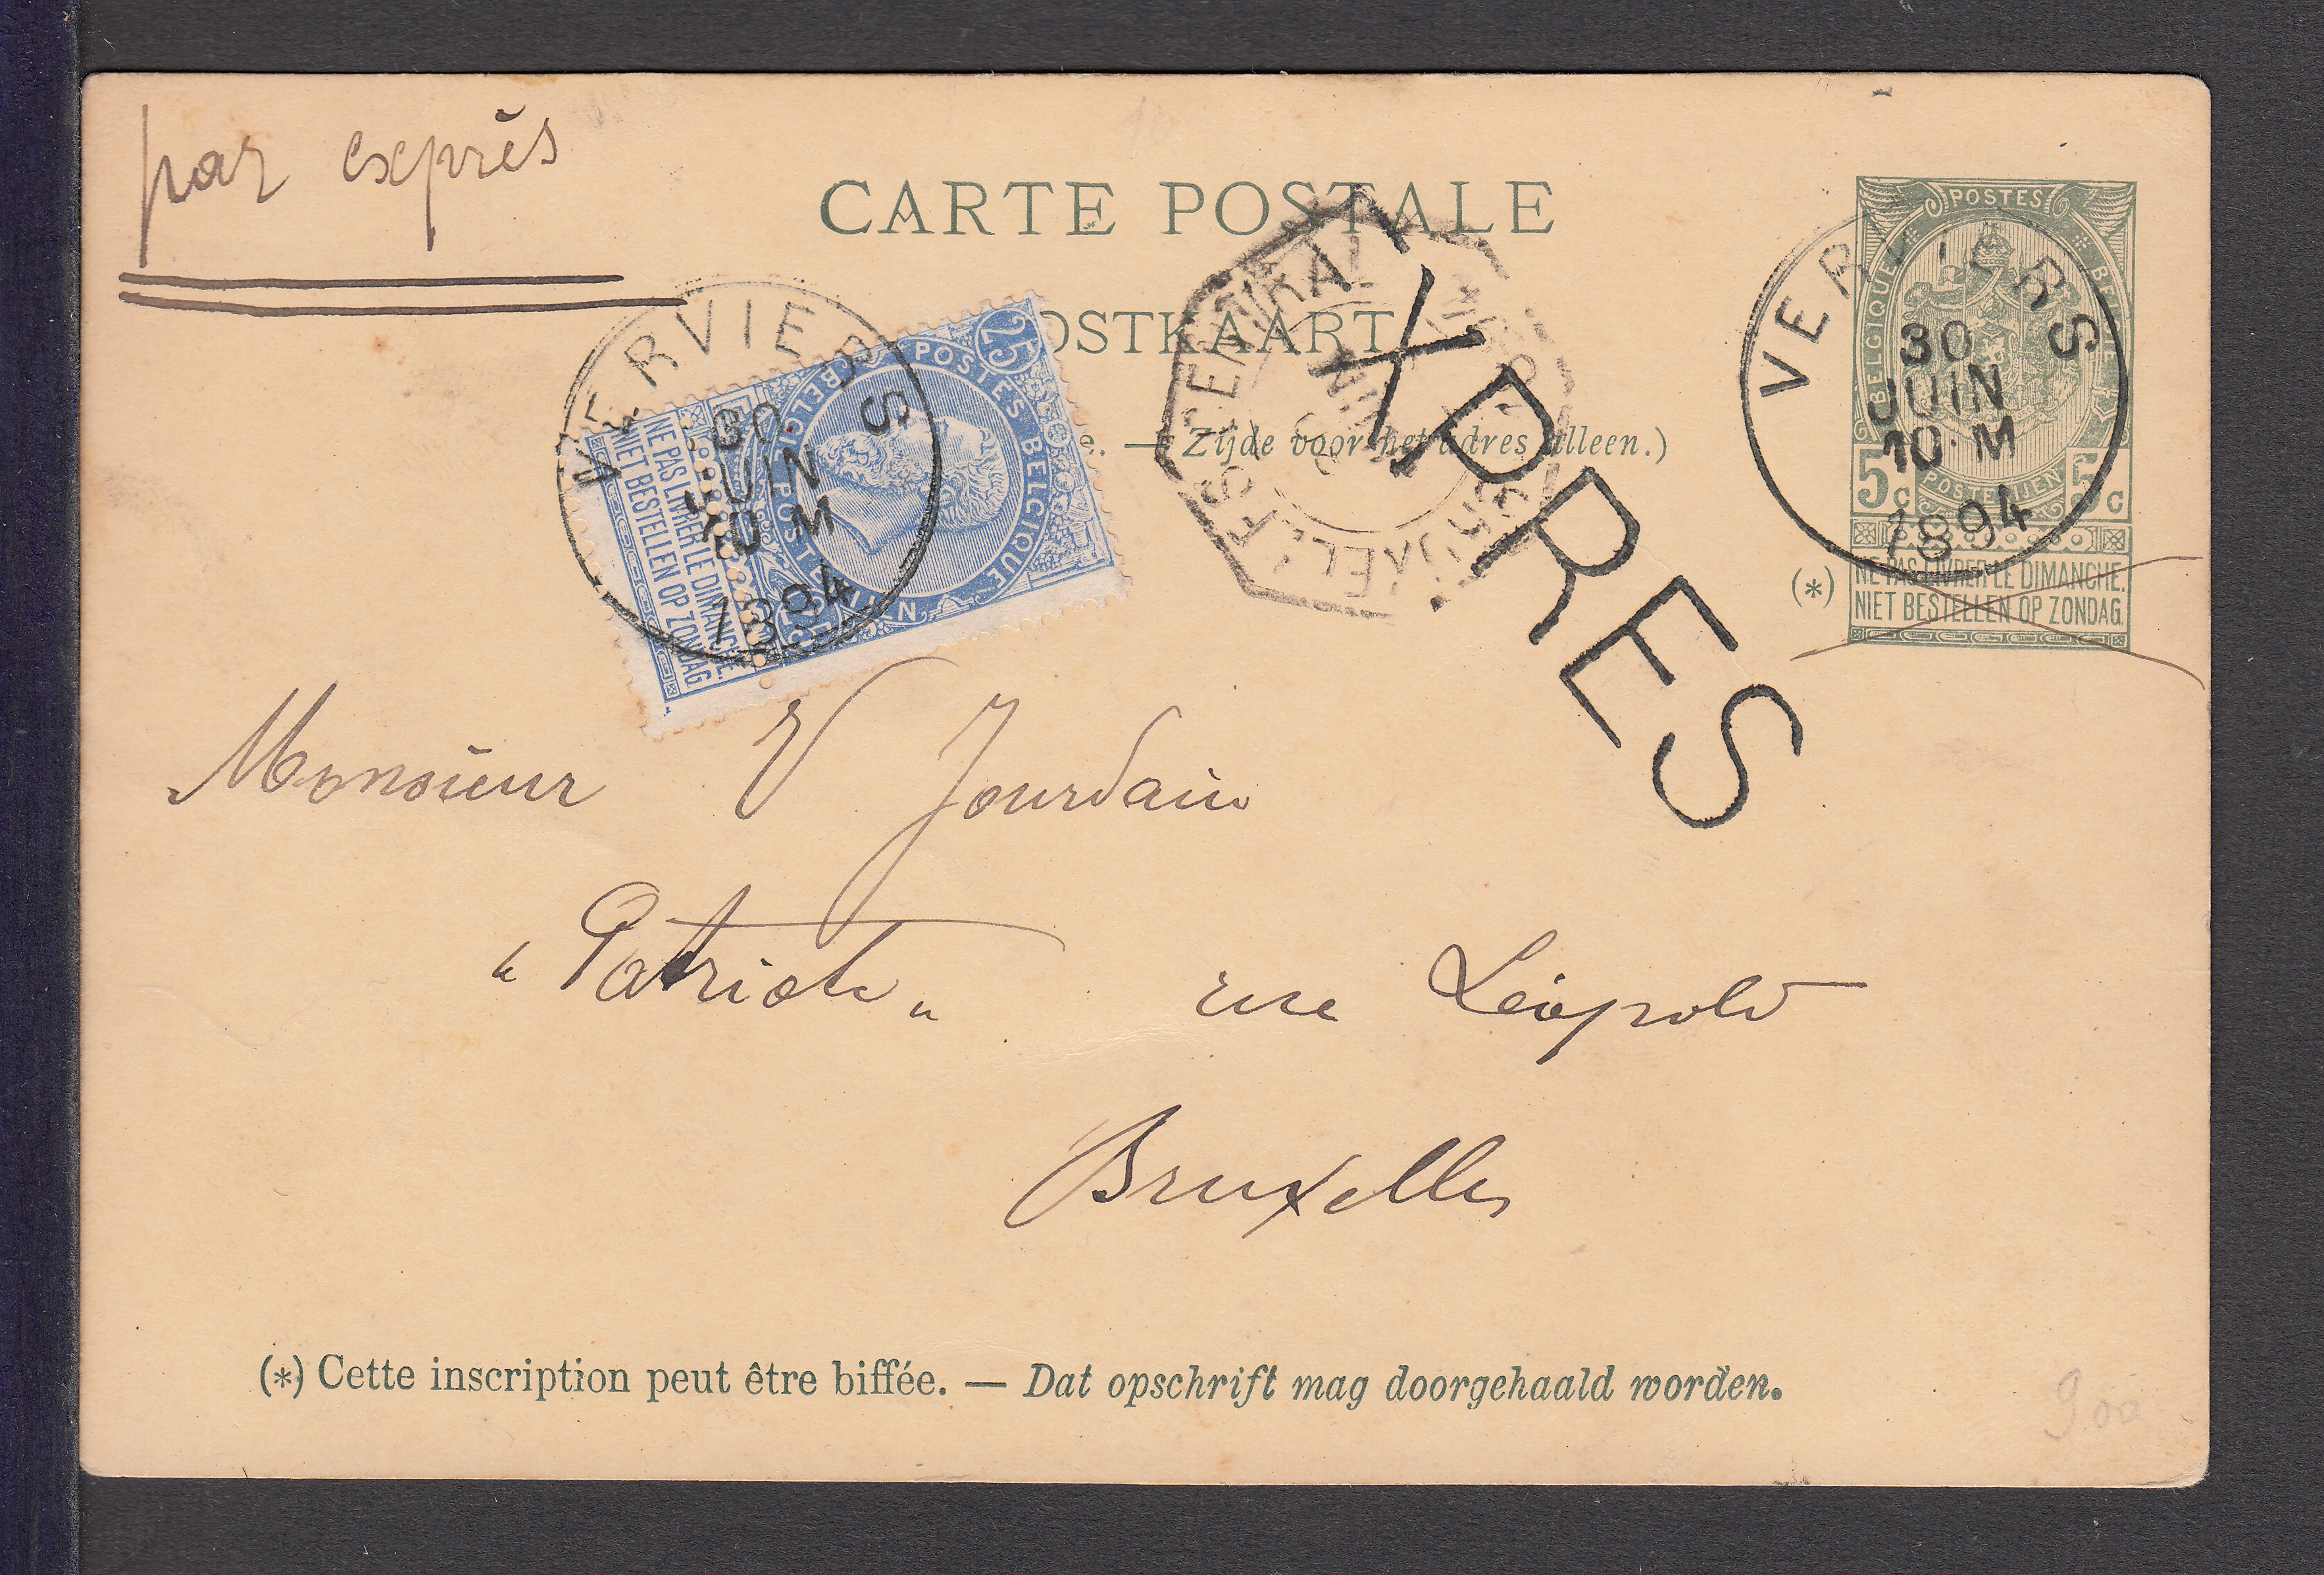 par exprès
CARTE POSTALE
OSTKAART
e. — Zijde voor het adres alleen.)
VERVIERS
30
JUIN
10 M
1894
25
POSTES BELGIQUE
NE PAS LIVRER LE DIMANCHE.
NIET BESTELLEN OP ZONDAG.
CENTRAL
JUIN
XPRES
POSTES
BELGIQUE
POSTERIJEN
5c 5c
VERVIERS
30
JUIN
10 M
1894
(*) NE PAS LIVRER LE DIMANCHE.
NIET BESTELLEN OP ZONDAG.
Monsieur V Jourdain
"Patriote" rue Léopold
Bruxelles
(*) Cette inscription peut être biffée. — Dat opschrift mag doorgehaald worden.
9.00